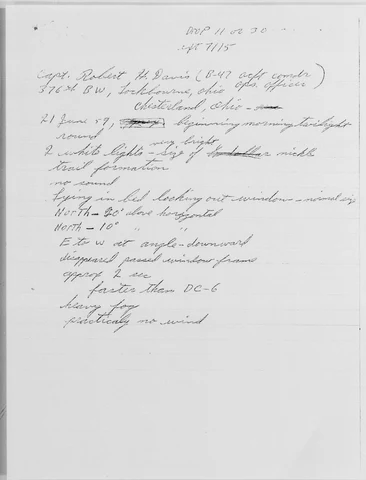 Capt. Robert H. Davis (B-47 acft comdr
376th BW, Lockbourne, Ohio ops. officer)
Chesterland, Ohio
21 June 59, beginning morning twilight
round very bright
2 white lights - size of nickle
trail formation
no sound
Lying in bed looking out window - normal
North - 20° above horizontal
North - 10° " "
E to W at angle-downward
disappeared passed window frame
approx 2 sec
faster than DC-6
heavy fog
practicaly no wind